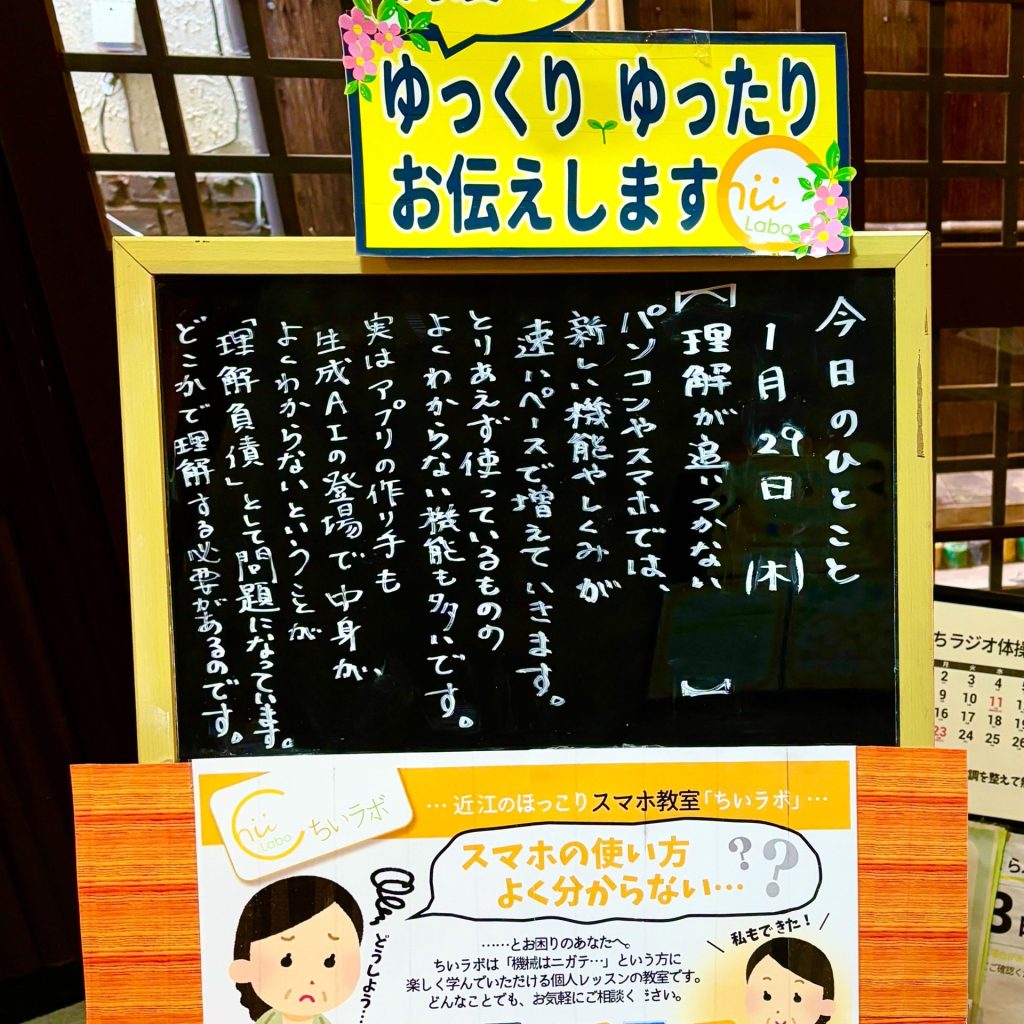 ゆっくり ゆったり
お伝えします
hii
Labo
今日のひとこと
1月29日(木)
【理解が追いつかない】
パソコンやスマホでは、
新しい機能やしくみが
速いペースで増えていきます。
とりあえず使っているものの
よくわからない機能も多いです。
実はアプリの作り手も
生成AIの登場で中身が
よくわからないということが
「理解負債」として問題になっています。
どこかで理解する必要があるのです。
ちラジオ体操
月 火 水
2 3 4
9 10 11
16 17 18 19
23 24 25 26
調を整えて
Chii
Labo
ちいラボ
…近江のほっこりスマホ教室「ちいラボ」…
スマホの使い方
よく分からない…??
どうしよう…
……とお困りのあなたへ。
ちいラボは「機械はニガテ…」という方に
楽しく学んでいただける個人レッスンの教室です。
どんなことでも、お気軽にご相談ください。
私もできた!
ご確認く